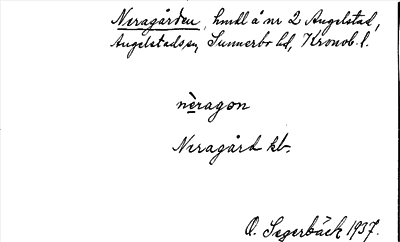 Neragården, hmdl å nr 2 Angelstad,
Angelstads sn, Sunnerbo hd, Kronob. l.
nèragɔn
Neragård kb.
O. Segerbäck 1937.